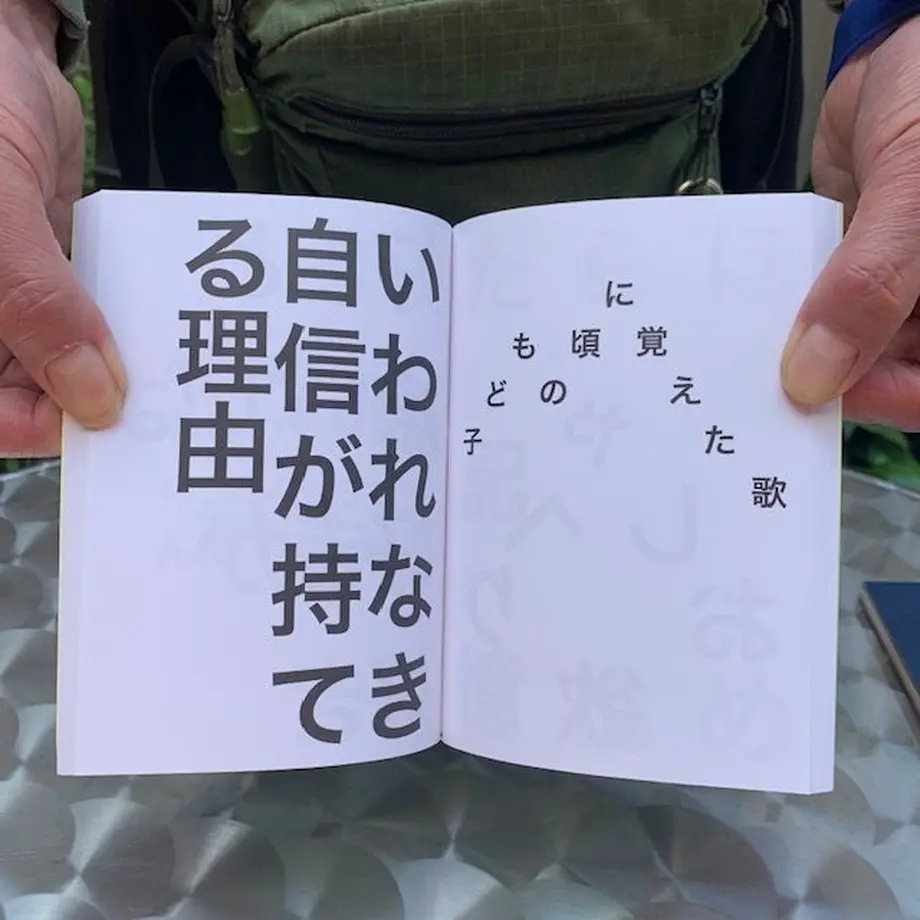 子どもの頃に覚えた歌
いわれなき
自信が持て
る理由